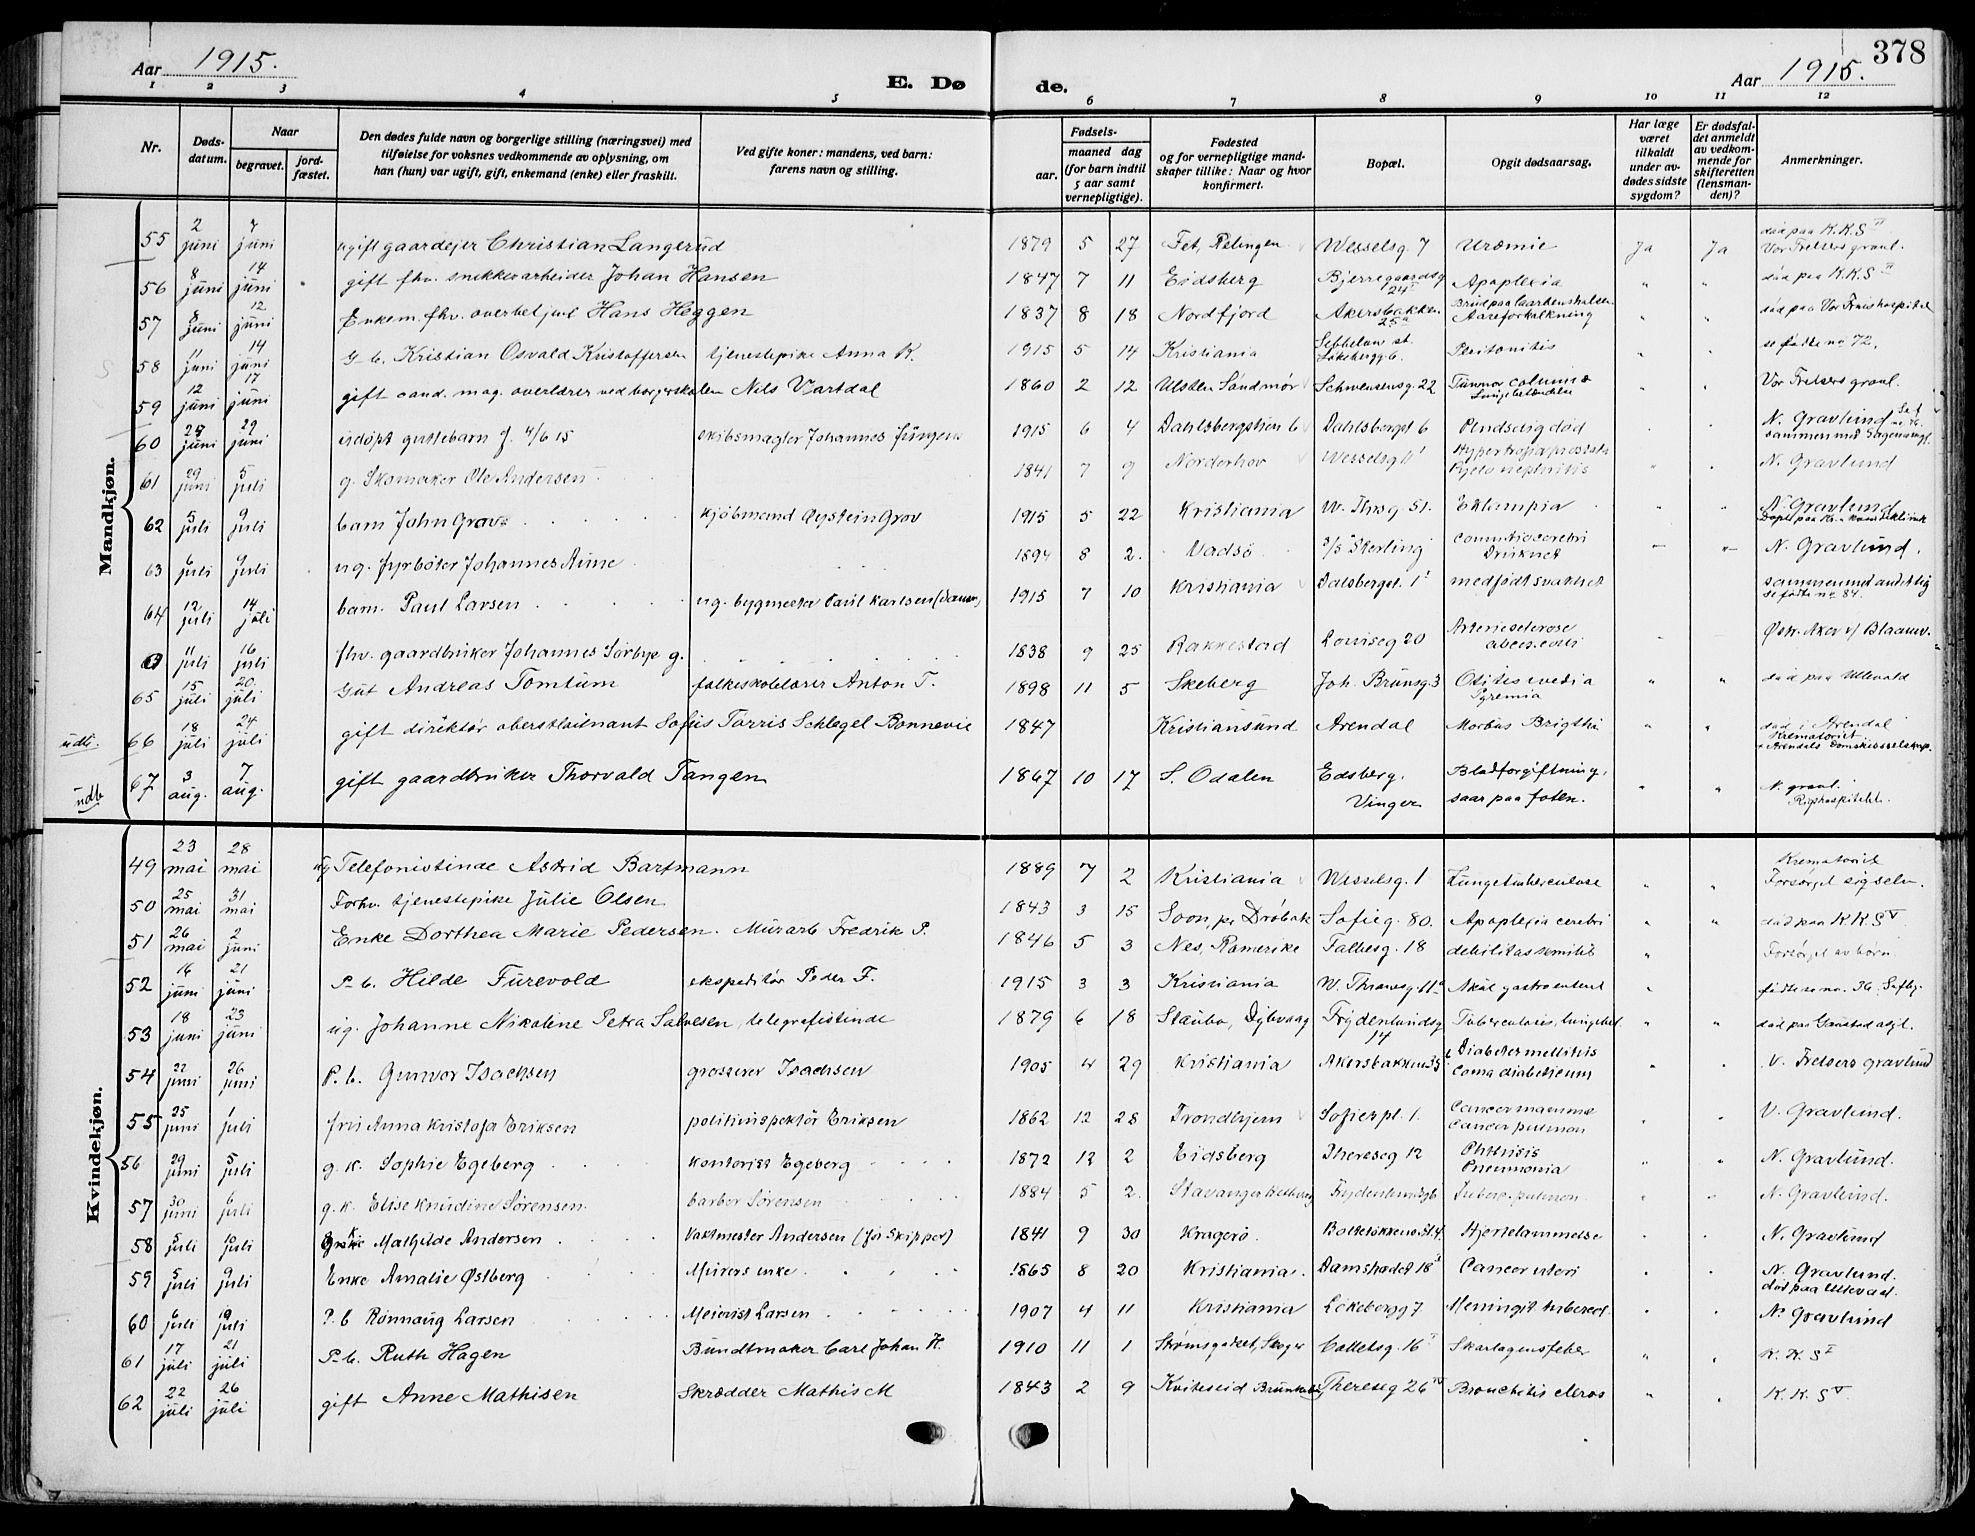 378
Aar 1915. E. Dø de. Aar 1915.
1 2 3 4 5 6 7 8 9 10 11 12
Nr. Døds-datum. Naar begravet. jord-fæstet. Den dødes fulde navn og borgerlige stilling (næringsvei) med tilføielse for voksnes vedkommende av oplysning, om han (hun) var ugift, gift, enkemand (enke) eller fraskilt. Ved gifte koner: mandens, ved barn: farens navn og stilling. Fødsels- aar. maaned dag (for barn indtil 5 aar samt vernepligtige). Fødested og for vernepligtige mandskaper tillike: Naar og hvor konfirmert. Bopæl. Opgit dødsaarsag. Har læge været tilkaldt under avdødes sidste sygdom? Er dødsfaldet anmeldt av vedkommende for skifteretten (lensmanden)? Anmerkninger.
Mandkjøn.
55 2 juni 7 juni ugift gaardejer Christian Langerud 1879 5 27 Fet, Relingen Wesselsg. 7 Uræmie Ja Ja død paa K.K.S II Vor Frelsers gravl.
56 8 juni 14 juni gift fhv. snekkerarbeider Johan Hansen 1847 7 11 Eidsberg Bjerregaardsg 24 Apoplexia " " død paa K.K.S II
57 8 juni 12 juni Enkem. fhv. overbetjent Hans Heggen 1837 8 18 Nordfjord Akersbakken 25a Aareforkalkning " " død paa Vor Frues hospital
58 11 juni 14 juni G. b. Kristian Osvald Kristoffersen tjenestepike Anna K. 1915 5 14 Kristiania Løkebergg 6. Peritonitis " " se fødte no 72.
59 12 juni 17 juni gift cand. mag. overlærer ved borgerskolen Nils Vartdal 1860 2 12 Ulsten Søndmør Schwensensg. 22 Tumor columna Lungebetændelse " " Vor Frelsers gravl.
60 29 juni udøpt guttebarn f. 4/6 15 skibsmægler Johannes Jürgens 1915 6 4 Dahlsbergstien 6 Dahlsbergst 6 Pludselig død N. Gravlund
61 29 juni 5 juli g. Skomaker Ole Andersen 1841 7 9 Norderhov Wesselsg 11 Hypertrofia prostata Pyelo nephritis " " N. Gravlund
62 5 juli 9 juli barn John Grov kjøbmand Øystein Grov 1915 5 22 Kristiania W. Thrsg 51. Eklampia " " N. Gravlund
63 6 juli 9 juli ug. fyrbøter Johannes Aune 1894 8 2. Vadsø s/s Sterling Commotio cerebri Druknet N. Gravlund.
64 12 juli 14 juli barn. Paul Larsen ug. bygmester Paul Karlsen 1915 7 10 Kristiania Dalsbergst. 1 medfødt svakhet se fødte no 84.
11 juli 16 juli fhv. gaardbruker Johannes Sørbye g. 1838 9 25 Rakkestad Louiseg 20 Arteriesclerose Østr. Aker v/ Blaauv.
65 15 juli 20 juli Gut Andreas Tomtum folkeskolelærer Anton T. 1898 11 5 Skeberg Joh. Brunsg. 3 Otitis media Pyremia " " død paa Ullevold
udb. 66 18 juli 24 juli gift direktør oberstløitnant Sofus Tørris Schlegel Bonnevie 1847 Kristiansund Arendal Morbus Brigthii " " død i Arendal Krematoriet
udb 67 3 aug. 7 aug. gift gaardbruker Thorvald Tangen 1867 10 17 S. Odalen Edsberg. Vinger Blodforgiftning, saar paa foten. " " N. gravl. Rigshospitalet.
Kvindekjøn.
49 23 mai 28 mai ug Telefonistinde Astrid Bartmann 1889 7 2 Kristiania Wesselsg. 1 Lungetuberculose " " Krematoriet Forsørget sig selv.
50 25 mai 31 mai Forhv. tjenestepike Julie Olsen 1843 3 15 Soon, pr Drøbak Sofieg. 80. Apoplexia cerebri " " død paa K.K.S V
51 26 mai 2 juni Enke Dorthea Marie Pedersen. Murarb Fredrik P. 1846 5 3 Nes, Romerike Falbesg. 18 debilitas senilis " Forsørget av børn
52 16 juni 21 juni P. b. Hilde Furevold ekspeditør Peder F. 1915 3 3 Kristiania W. Thranesg. 11 Akut gastroenterit " fødte se no. 36.
53 18 juni 23 juni ug. Johanne Nikoline Petra Salvesen, telegrafistinde 1879 6 18 Staubø, Dybvaag Frydenlundsg 14 " " død paa Gaustad asyl.
54 22 juni 26 juni P. b. Gunvor Isachsen grosserer Isachsen 1905 4 29 Kristiania Akersbakken 35 Diabetes mellitus Coma diabeticum " " V. Frelsers gravlund
55 25 juni 1 juli frui Anna Kristofa Eriksen politiinspektør Eriksen 1862 12 28 Trondhjem Sofiespl. 1. Cancer mammæ Cancer pulmon " " V. Gravlund.
56 29 juni 5 juli g. k. Sophie Egeberg kontorist Egeberg 1872 12 2 Eidsberg Thereseg 12 Phthisis Pneumonia " " N. Gravlund.
57 30 juni 6 juli g. k. Elise Knudine Sørensen barber Sørensen 1884 5 2. Stavanger Tuberc. pulmon " " N. Gravlund.
58 5 juli 10 juli Mathilde Andersen Vaktmester Andersen (før Skipper) 1841 9 30 Kragerø Hjertelammelse " " N. Gravlund
59 5 juli 9 juli Enke Amalie Østberg Murers enke 1865 8 20 Kristiania. Damstrædet 18 Cancer uteri " " N. Gravlund. død paa Ullevaal.
60 6 juli 10 juli P. b Rønnaug Larsen Meierist Larsen 1907 4 11 Kristiania Løkebergg 7 Meningit. tubercul. " " N. Gravlund
61 17 juli 21 juli P. b. Ruth Hagen Buntmaker Carl Johan H. 1910 11 1 Colletsg. 16 Skarlagensfeber " " K. K. S I
62 22 juli 26 juli gift Anne Mathisen Skrædder Mathis M 1843 2 9 Kviteseid Thereseg 26 IV Bronchitis " " K. K. S V.